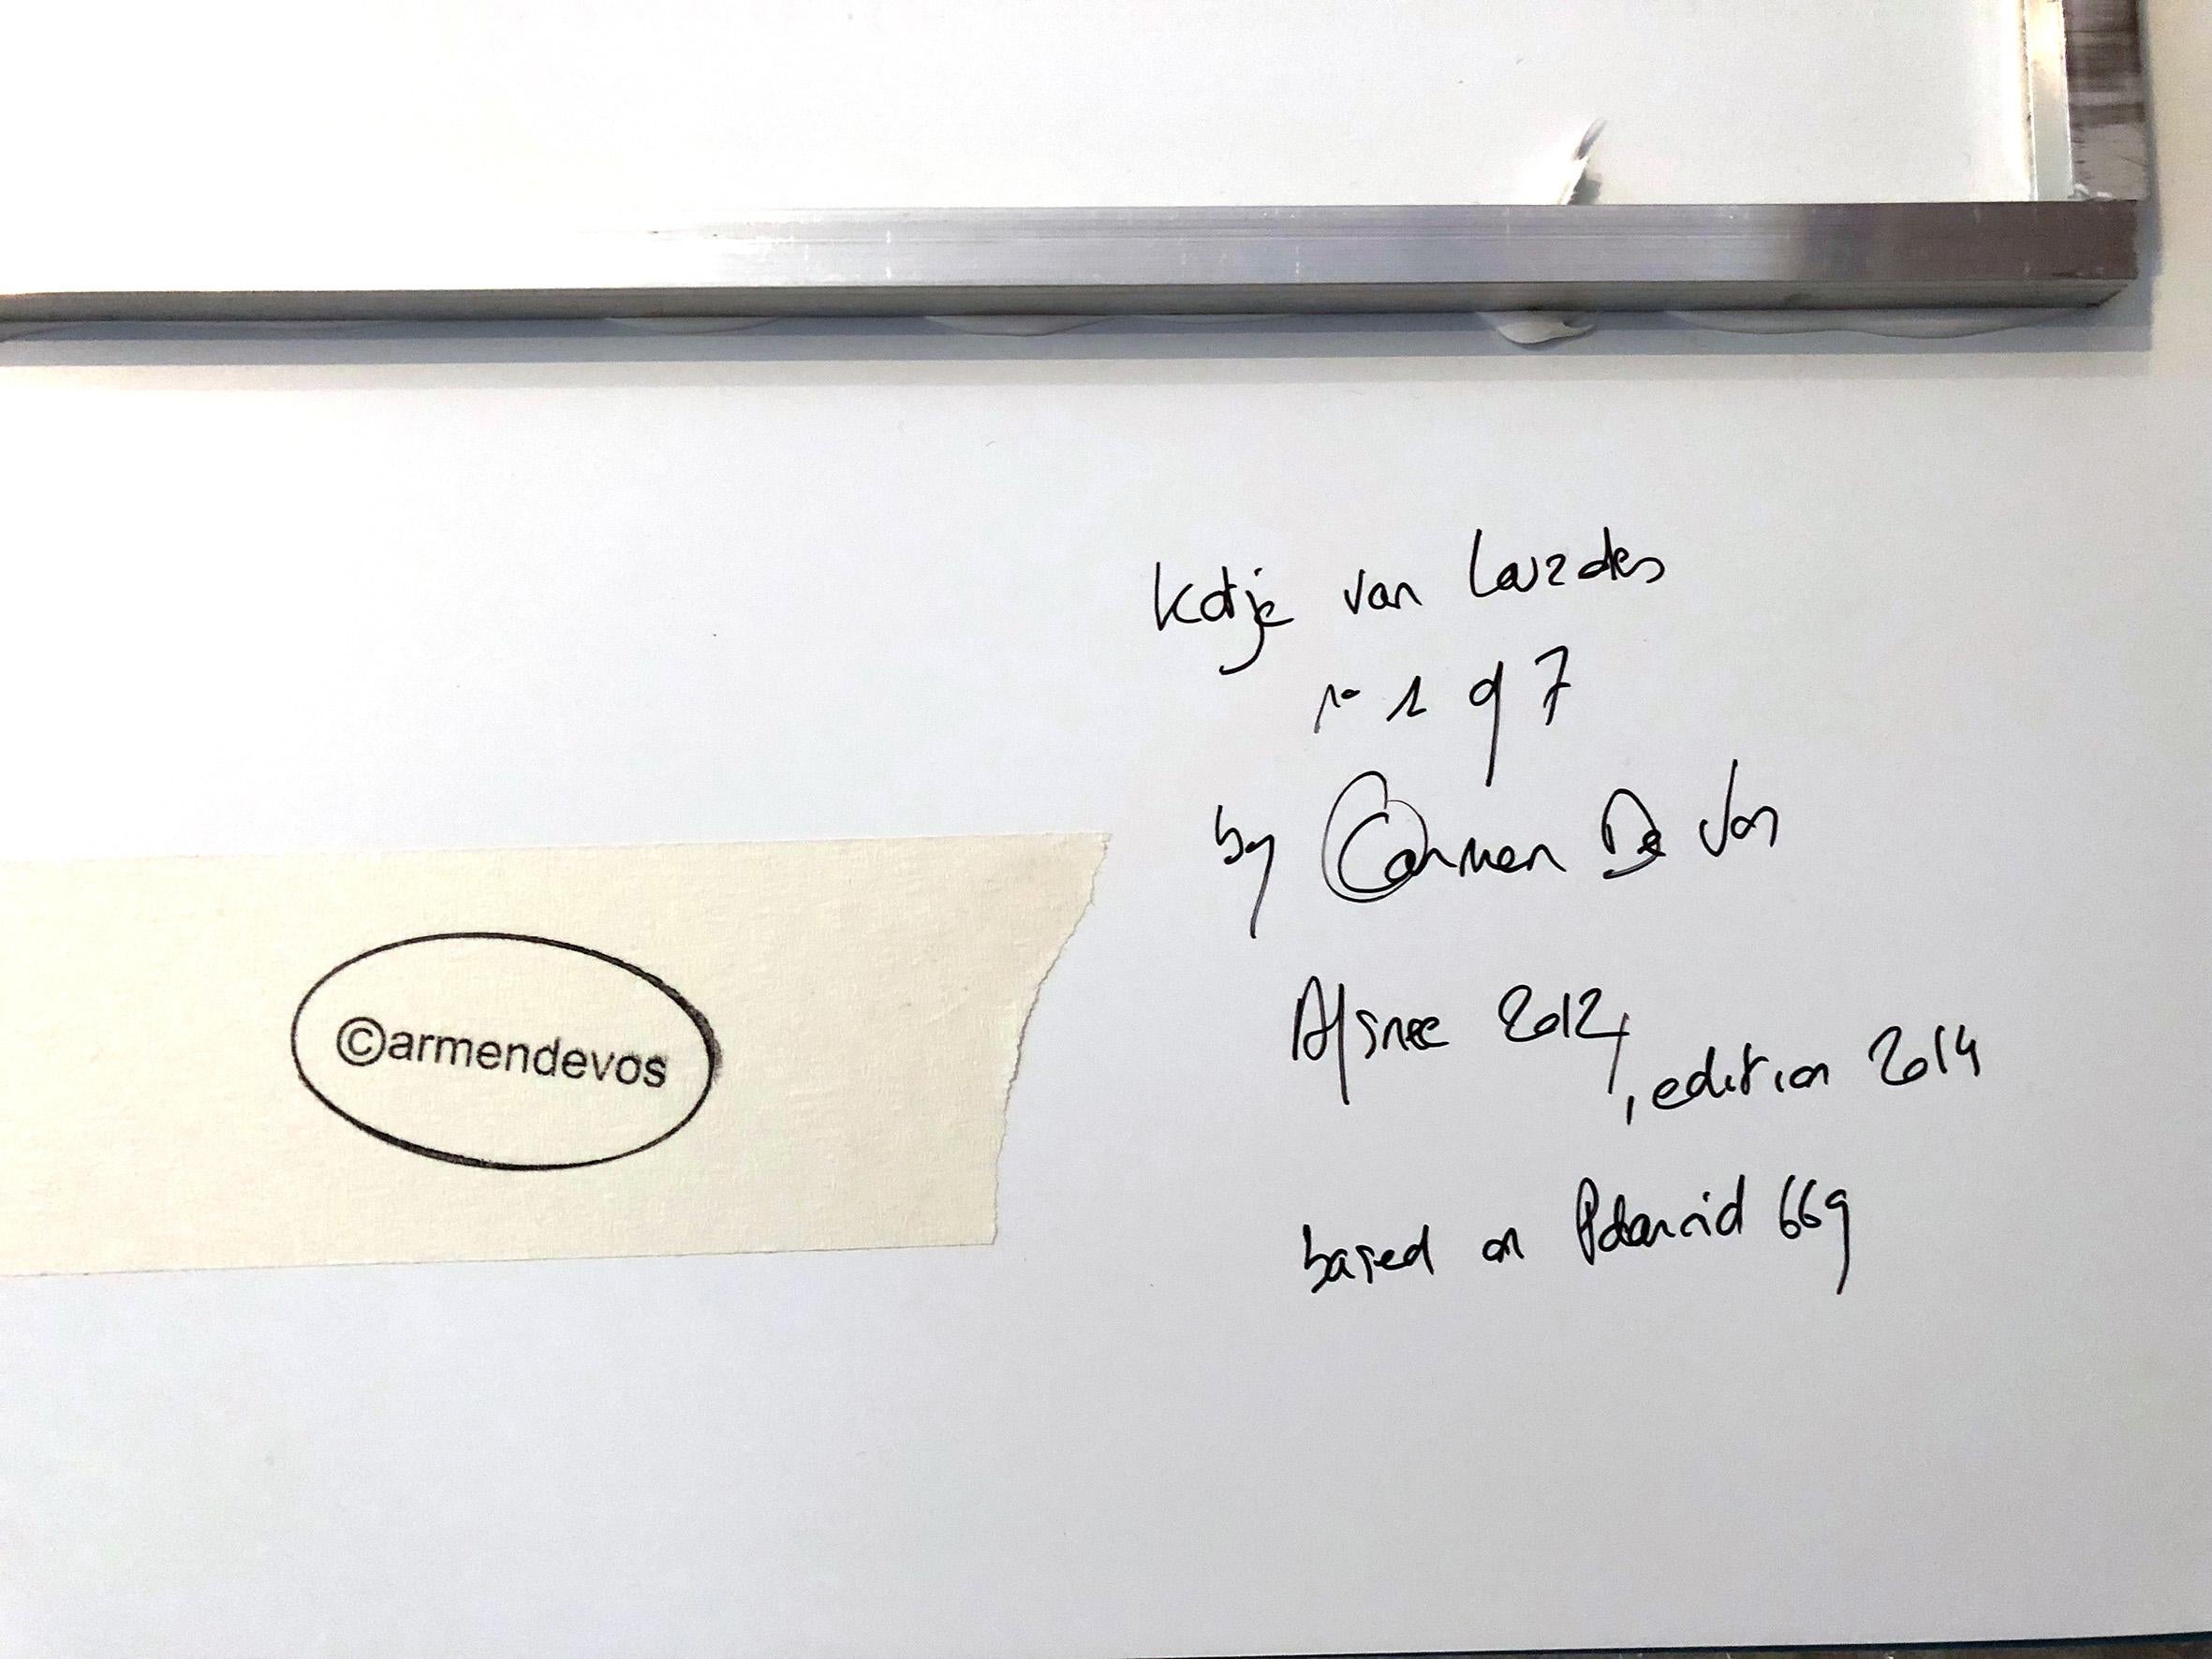 Katje van Lourdes
n° 1 of 7
by ©armen De Vos
Afsnee 2012, edition 2014
based on Polaroid 669
©armendevos